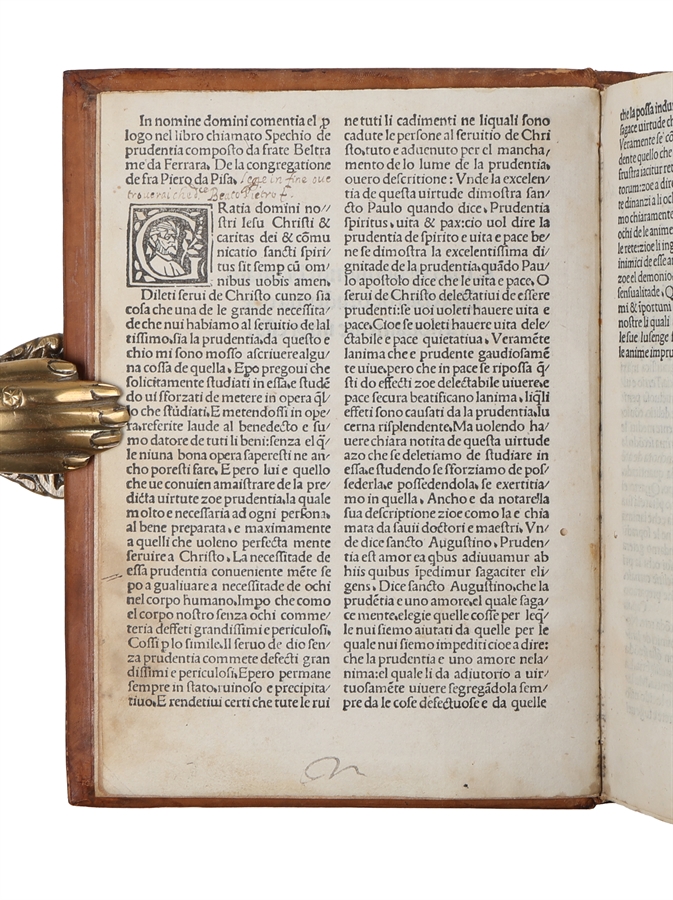 In nomine domini comentia el ꝓ
logo nel libro chiamato Spechio de
prudentia composto da frate Beltra
me da Ferrara. De la congregatione
de fra Piero da Pisa.
in fine
Beato Pietro
GRatia domini no//
stri Iesu Christi &
caritas dei & cōmu
nicatio sancti spiri/
tus sit semp cū om/
nibus uobis amen.
Dileti serui de Christo cunzo sia
cosa che una de le grande necessita/
de che nui habiamo al seruitio de lal
tissimo, sia la prudentia, da questo e
chio mi sono mosso ascriuere algu/
na cossa de quella. Epo pregoui che
solicitamente studiati in essa, e studē
do ui sforzati de metere in opera q̄l
lo che stùdiati. E metendossi in ope/
ra, referite laude al benedecto e su/
mo datore de tuti li beni: senza el q̄/
le niuna bona opera saperesti ne an/
cho poresti fare. E pero lui e quello
che ue conuien amaistrare de la pre/
dicta uirtute zoe prudentia, la quale
molto e necessaria ad ogni persona,
al bene preparata, e maximamente
a quelli che uoleno perfecta mente
seruire a Christo. La necessitade de
essa prudentia conueniente mēte se
po agualiuare a necessitade de ochi
nel corpo humano. Impo che como
el corpo nostro senza ochi comme/
teria deffeti grandissimi e periculosi.
Cossi p lo simile. Il seruo de dio sen/
za prudentia commete defecti gran
dissimi e periculosi. Epero permane
sempre in stato, ruinoso e precipita/
tiuo. E rendetiui certi che tute le rui
ne tuti li cadimenti ne liquali sono
cadute le persone al seruitio de Chri
sto, tuto e aduenuto per el mancha/
mento de lo lume de la prudentia.
ouero descritione: Vnde la excelen/
tia de questa uirtude dimostra san/
cto Paulo quando dice. Prudentia
spiritus, uita & pax: cio uol dire la
prudentia de spirito e uita e pace be/
ne se dimostra la excelentissima di/
gnitade de la prudentia, quādo Pau/
lo apostolo dice che le uita e pace. O
serui de Christo delectatiui de essere
prudenti: se uoi uoleti hauere uita e
pace. Cioe se uoleti hauere uita dele/
ctabile e pace quietatiua. Veramēte
lanima che e prudente gaudiosamē
te uiue, pero che in pace se ripossa q̄/
sti do effecti zoe delectabile uiuere, e
pace secura beatificano lanima, liq̄li
effeti sono causati da la prudentia, lu
cerna risplendente. Ma uolendo ha/
uere chiara notita de questa uirtude
azo che se deletiamo de studiare in
essa, e studendo se sforziamo de pos/
sederla, e possedendola, se exertitia/
mo in quella. Ancho e da notarella
sua descriptione zioe como la e chia
mata da sauii doctori e maestri. Vn/
de dice sancto Augustino. Pruden/
tia est amor ea q̄bus adiuuamur ab
hiis quibus īpedimur sagaciter eli/
gens. Dice sancto Augustino, che la
prudētia e uno amore, el quale saga/
ce mente, elegie quelle cosse per leq̄/
le nui siemo aiutati da quelle per le
quale nui siemo impediti cioe a dire:
che la prudentia e uno amore nela/
nima: el quale li da adiutorio a uir/
tuosamēte uiuere segregādola sem/
pre da le cose defectuose e da quelle